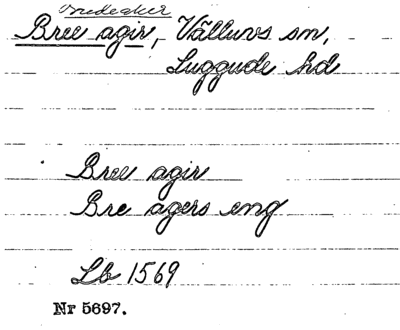 Bredeaker
Bree agir, Välluvs sn,
Luggude hd
Bree agir
Bre agers eng
Lb 1569
Nr 5697.